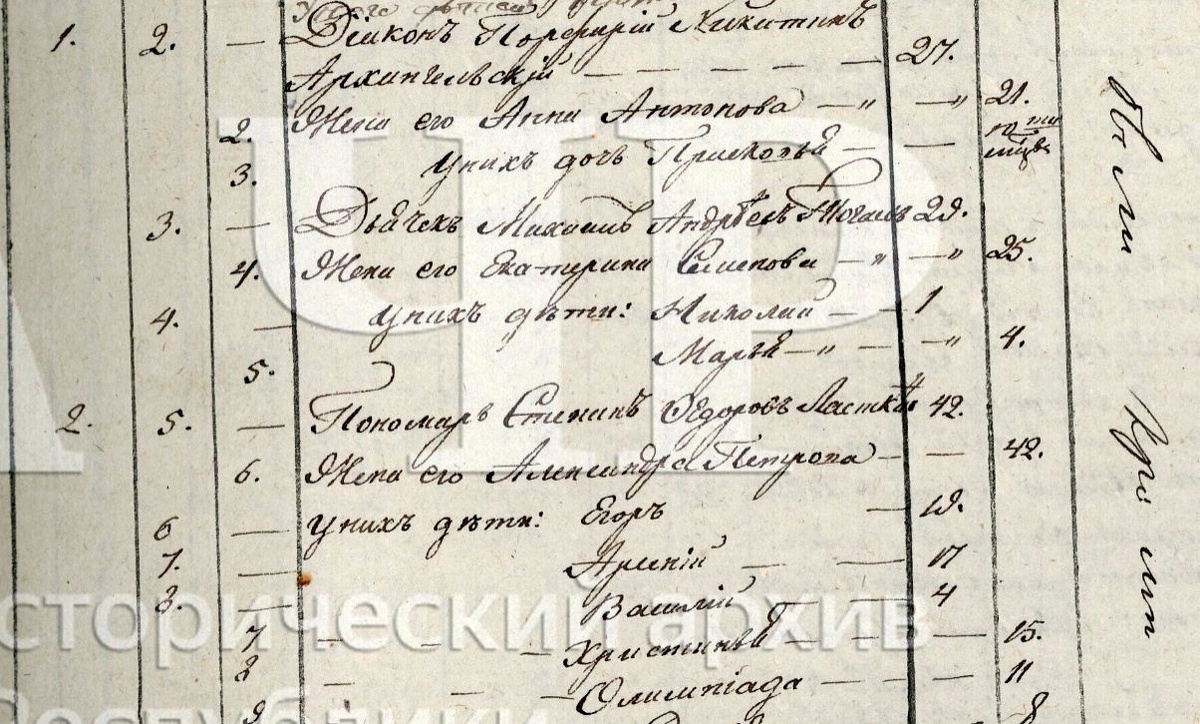 1. 2. — Діаконъ Порфирій Никитинъ
Архангельскій — — — — — 27.
2. Жена его Анна Антонова — „ — „ 21.
3. у нихъ дочь Прасковья — —
3. — Дьячекъ Михаилъ Андреевъ 29.
4. Жена его Екатерина Семенова — „ — „ 25.
4. — у нихъ дѣти: Николай — — 1
5. Марья — „ — — „ 4.
2. 5. — Пономарь Степанъ Ѳедоровъ 42.
6. Жена его Александра Петрова — — 42.
6 — у нихъ дѣти: Егоръ — 19.
7. — Арсеній — — 17
8. — Василій — — 4
7 — — Христина — — — — 15.
8 — — — Олимпіада — — — — 11
9 8
были
при
исторический архив
Республики
ЧР